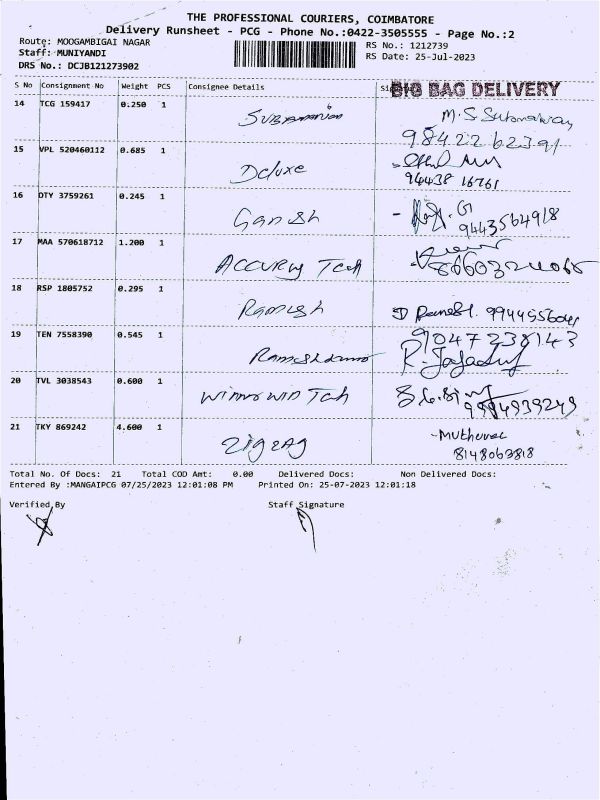 THE PROFESSIONAL COURIERS, COIMBATORE
Delivery Runsheet - PCG - Phone No.:0422-3505555 - Page No.:2
Route: MOOGAMBIGAI NAGAR
Staff: MUNIYANDI
DRS No.: DCJB121273902
RS No.: 1212739
RS Date: 25-Jul-2023
BIG BAG DELIVERY
S No Consignment No Weight PCS Consignee Details
14 TCG 159417 0.250 1 M.S
98422 62391
15 VPL 520460112 0.685 1 Deluxe
94438 16761
16 DTY 3759261 0.245 1 Ganesh
9443564918
17 MAA 570618712 1.200 1 ACCURacy Tech
18 RSP 1805752 0.295 1 Ramesh
19 TEN 7558390 0.545 1 Rameshkumar
9047238143
20 TVL 3038543 0.600 1 Tech
9994939249
21 TKY 869242 4.600 1 zigzag
8148063818
Total No. Of Docs: 21 Total COD Amt: 0.00 Delivered Docs: Non Delivered Docs:
Entered By :MANGAIPCG 07/25/2023 12:01:08 PM Printed On: 25-07-2023 12:01:18
Verified By Staff Signature